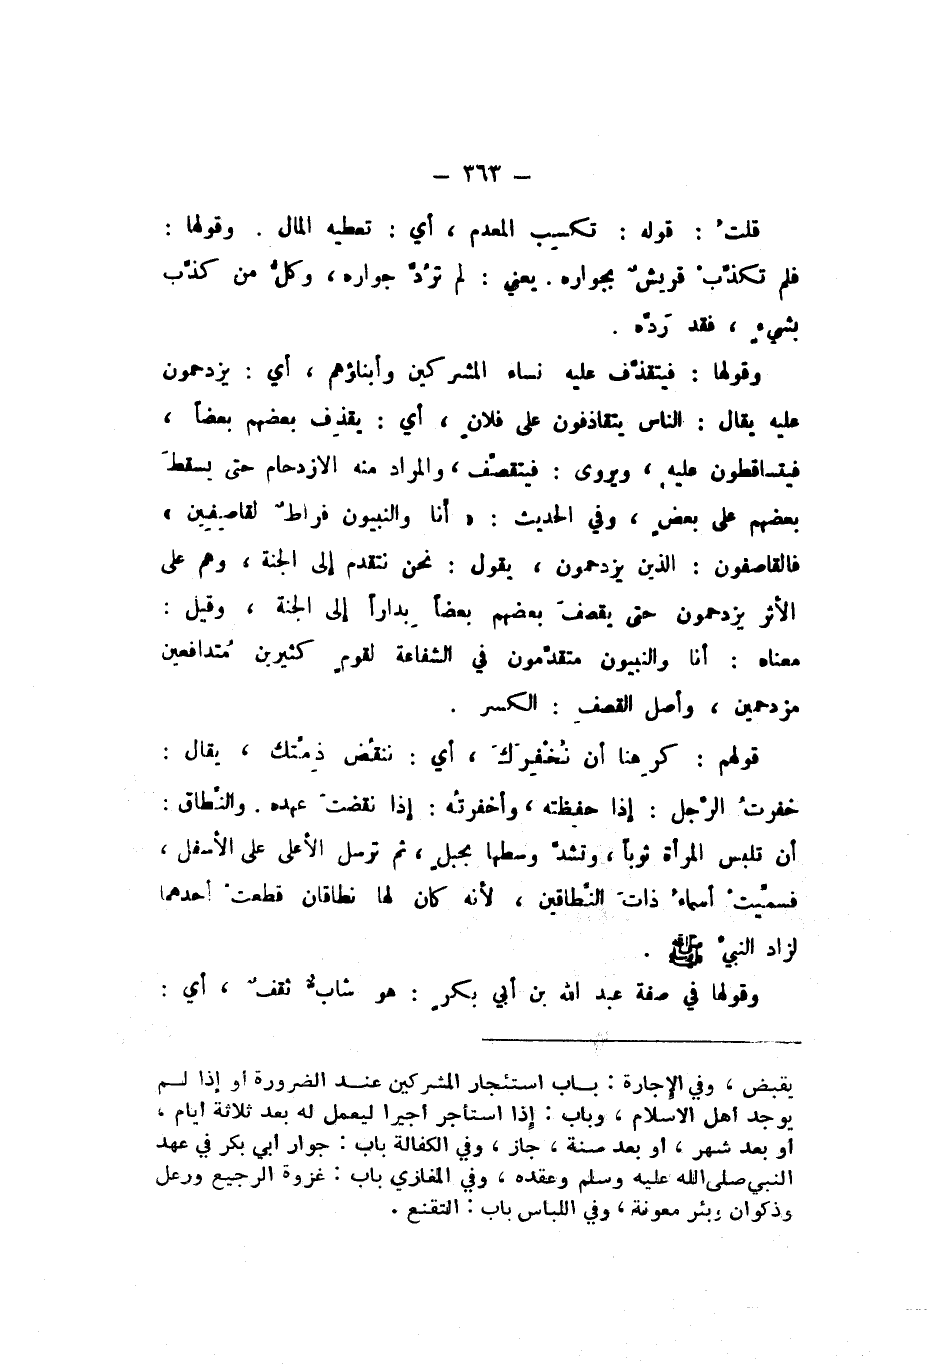 – ٣٦٣ –
قلتُ : قوله : تكسِب المعدم ، أي : تعطيه المال . وقولها :
فلم تكذّبْ قريشٌ بجواره . يعني : لم تَرُدَّ جواره ، وكلُّ من كذّب
بشيءٍ ، فقد رَدَّه .
وقولها : فيتقذَّف عليه نساء المشركين وأبناؤهم ، أي : يزدحمون
عليه يقال : الناس يتقاذفون على فلانٍ ، أي : يقذِف بعضهم بعضاً ،
فيتساقطون عليهِ ، ويروى : فيتقصَّف ، والمراد منه الازدحام حتى يسقطَ
بعضهم على بعضٍ ، وفي الحديث : « أنا والنبيون فراطٌ لقاصِفِين »
فالقاصفون : الذين يزدحمون ، يقول : نحن نتقدم إلى الجنة ، وهم على
الأثر يزدحمون حتى يقصفَ بعضهم بعضاً بِداراً إلى الجنة ، وقيل :
معناه : أنا والنبيون متقدّمون في الشفاعة لقومٍ كثيرين مُتدافعين
مزدحمين ، وأصل القصفِ : الكسر .
قولهم : كرِهنا أن نُخْفِرَكَ ، أي : ننقُض ذِمَّتك ، يقال :
خفرتُ الرّجل : إذا حفِظته ، وأخفرتُه : إذا نقضتَ عهده . والنّطاق :
أن تلبس المرأة ثوباً ، وتشدَّ وسطها بحبلٍ ، ثم ترسل الأعلى على الأسفل ،
فسمّيتْ أسماءُ ذاتَ النّطاقين ، لأنه كان لها نطاقان قطعتْ أحدهما
لزاد النبيّ ﷺ .
وقولها في صفة عبد الله بن أبي بكرٍ : هو شابٌّ ثقفٌ ، أي :
يقبض ، وفي الإجارة : بـاب استئجار المشركين عنـد الضرورة أو إذا لـم
يوجد أهل الاسلام ، وباب : إذا استأجر أجيرا ليعمل له بعد ثلاثة أيام ،
أو بعد شهر ، أو بعد سنة ، جاز ، وفي الكفالة باب : جوار أبي بكر في عهد
النبي صلى الله عليه وسلم وعقده ، وفي المغازي باب : غزوة الرجيع ورعل
وذكوان وبئر معونة ، وفي اللباس باب : التقنع .